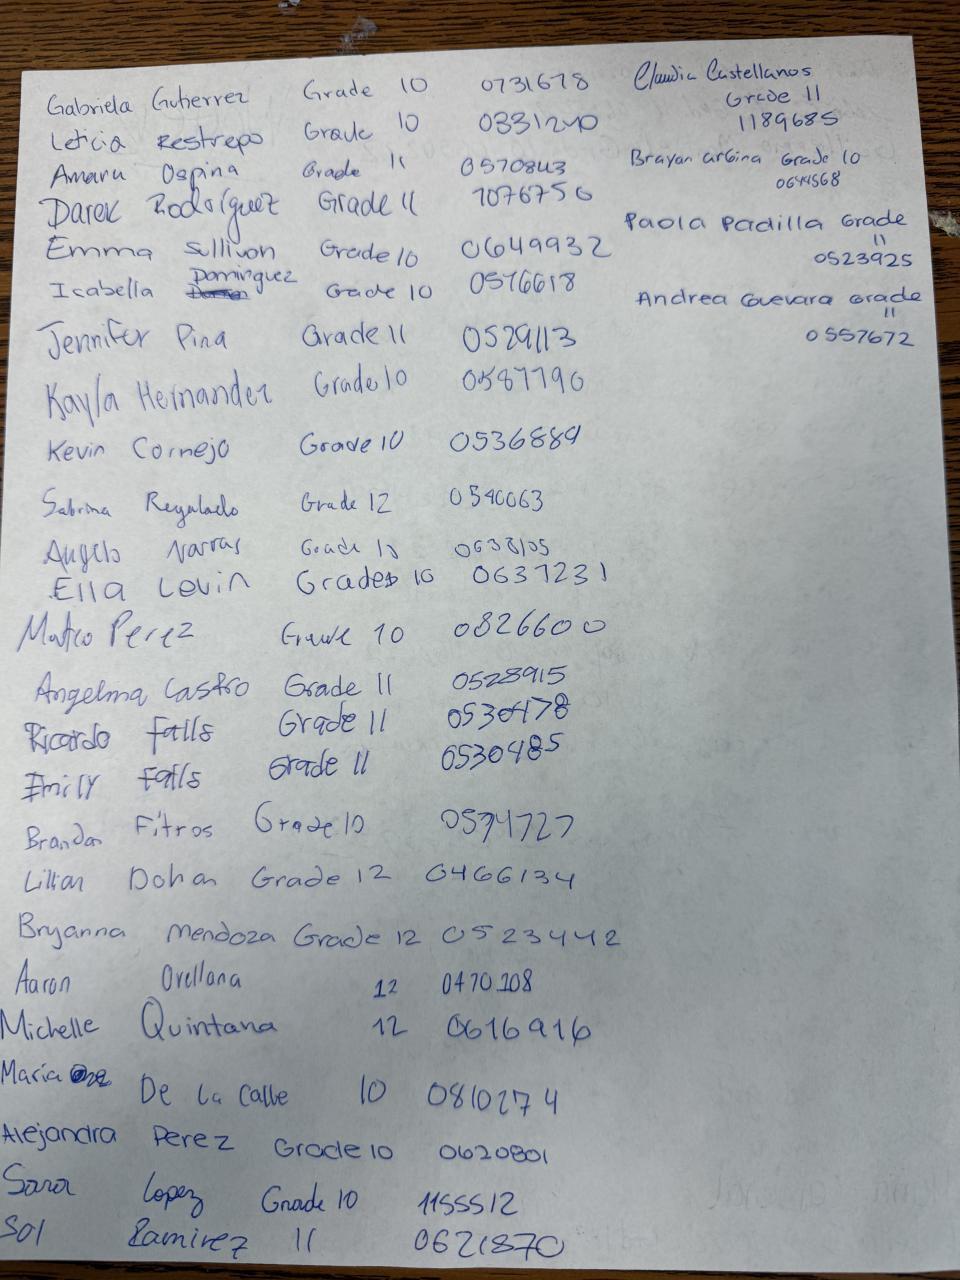 Gabriela Gutierrez Grade 10 0731678
Leticia Restrepo Grade 10 0331240
Amaru Ospina Grade 11 0570843
Darek Rodriguez Grade 11 1076756
Emma Sullivon Grade 10 0649932
Isabella Dominguez Grade 10 0576618
Jennifer Pina Grade 11 0529113
Kayla Hernandez Grade 10 0587796
Kevin Cornejo Grade 10 0536889
Sabrina Regalado Grade 12 0540063
Angelo Grade 10
Ella Levin Grade 10 0637231
Mateo Perez Grade 10 0826600
Angelina Castro Grade 11 0528915
Ricardo Falls Grade 11 0530478
Emily Falls Grade 11 0530485
Brandon Fitros Grade 10
Lillian Dohan Grade 12 0466134
Bryanna Mendoza Grade 12 0523442
Aaron Orellana 12 0470108
Michelle Quintana 12 0616916
Maria De La Calle 10 0810274
Alejandra Perez Grade 10 0620801
Sara Lopez Grade 10 1155512
Sol Ramirez 11 0621870
Claudia Castellanos
Grade 11
1189685
Brayan Grade 10
0644568
Paola Padilla Grade
11
0523925
Andrea Guevara Grade
11
0557672